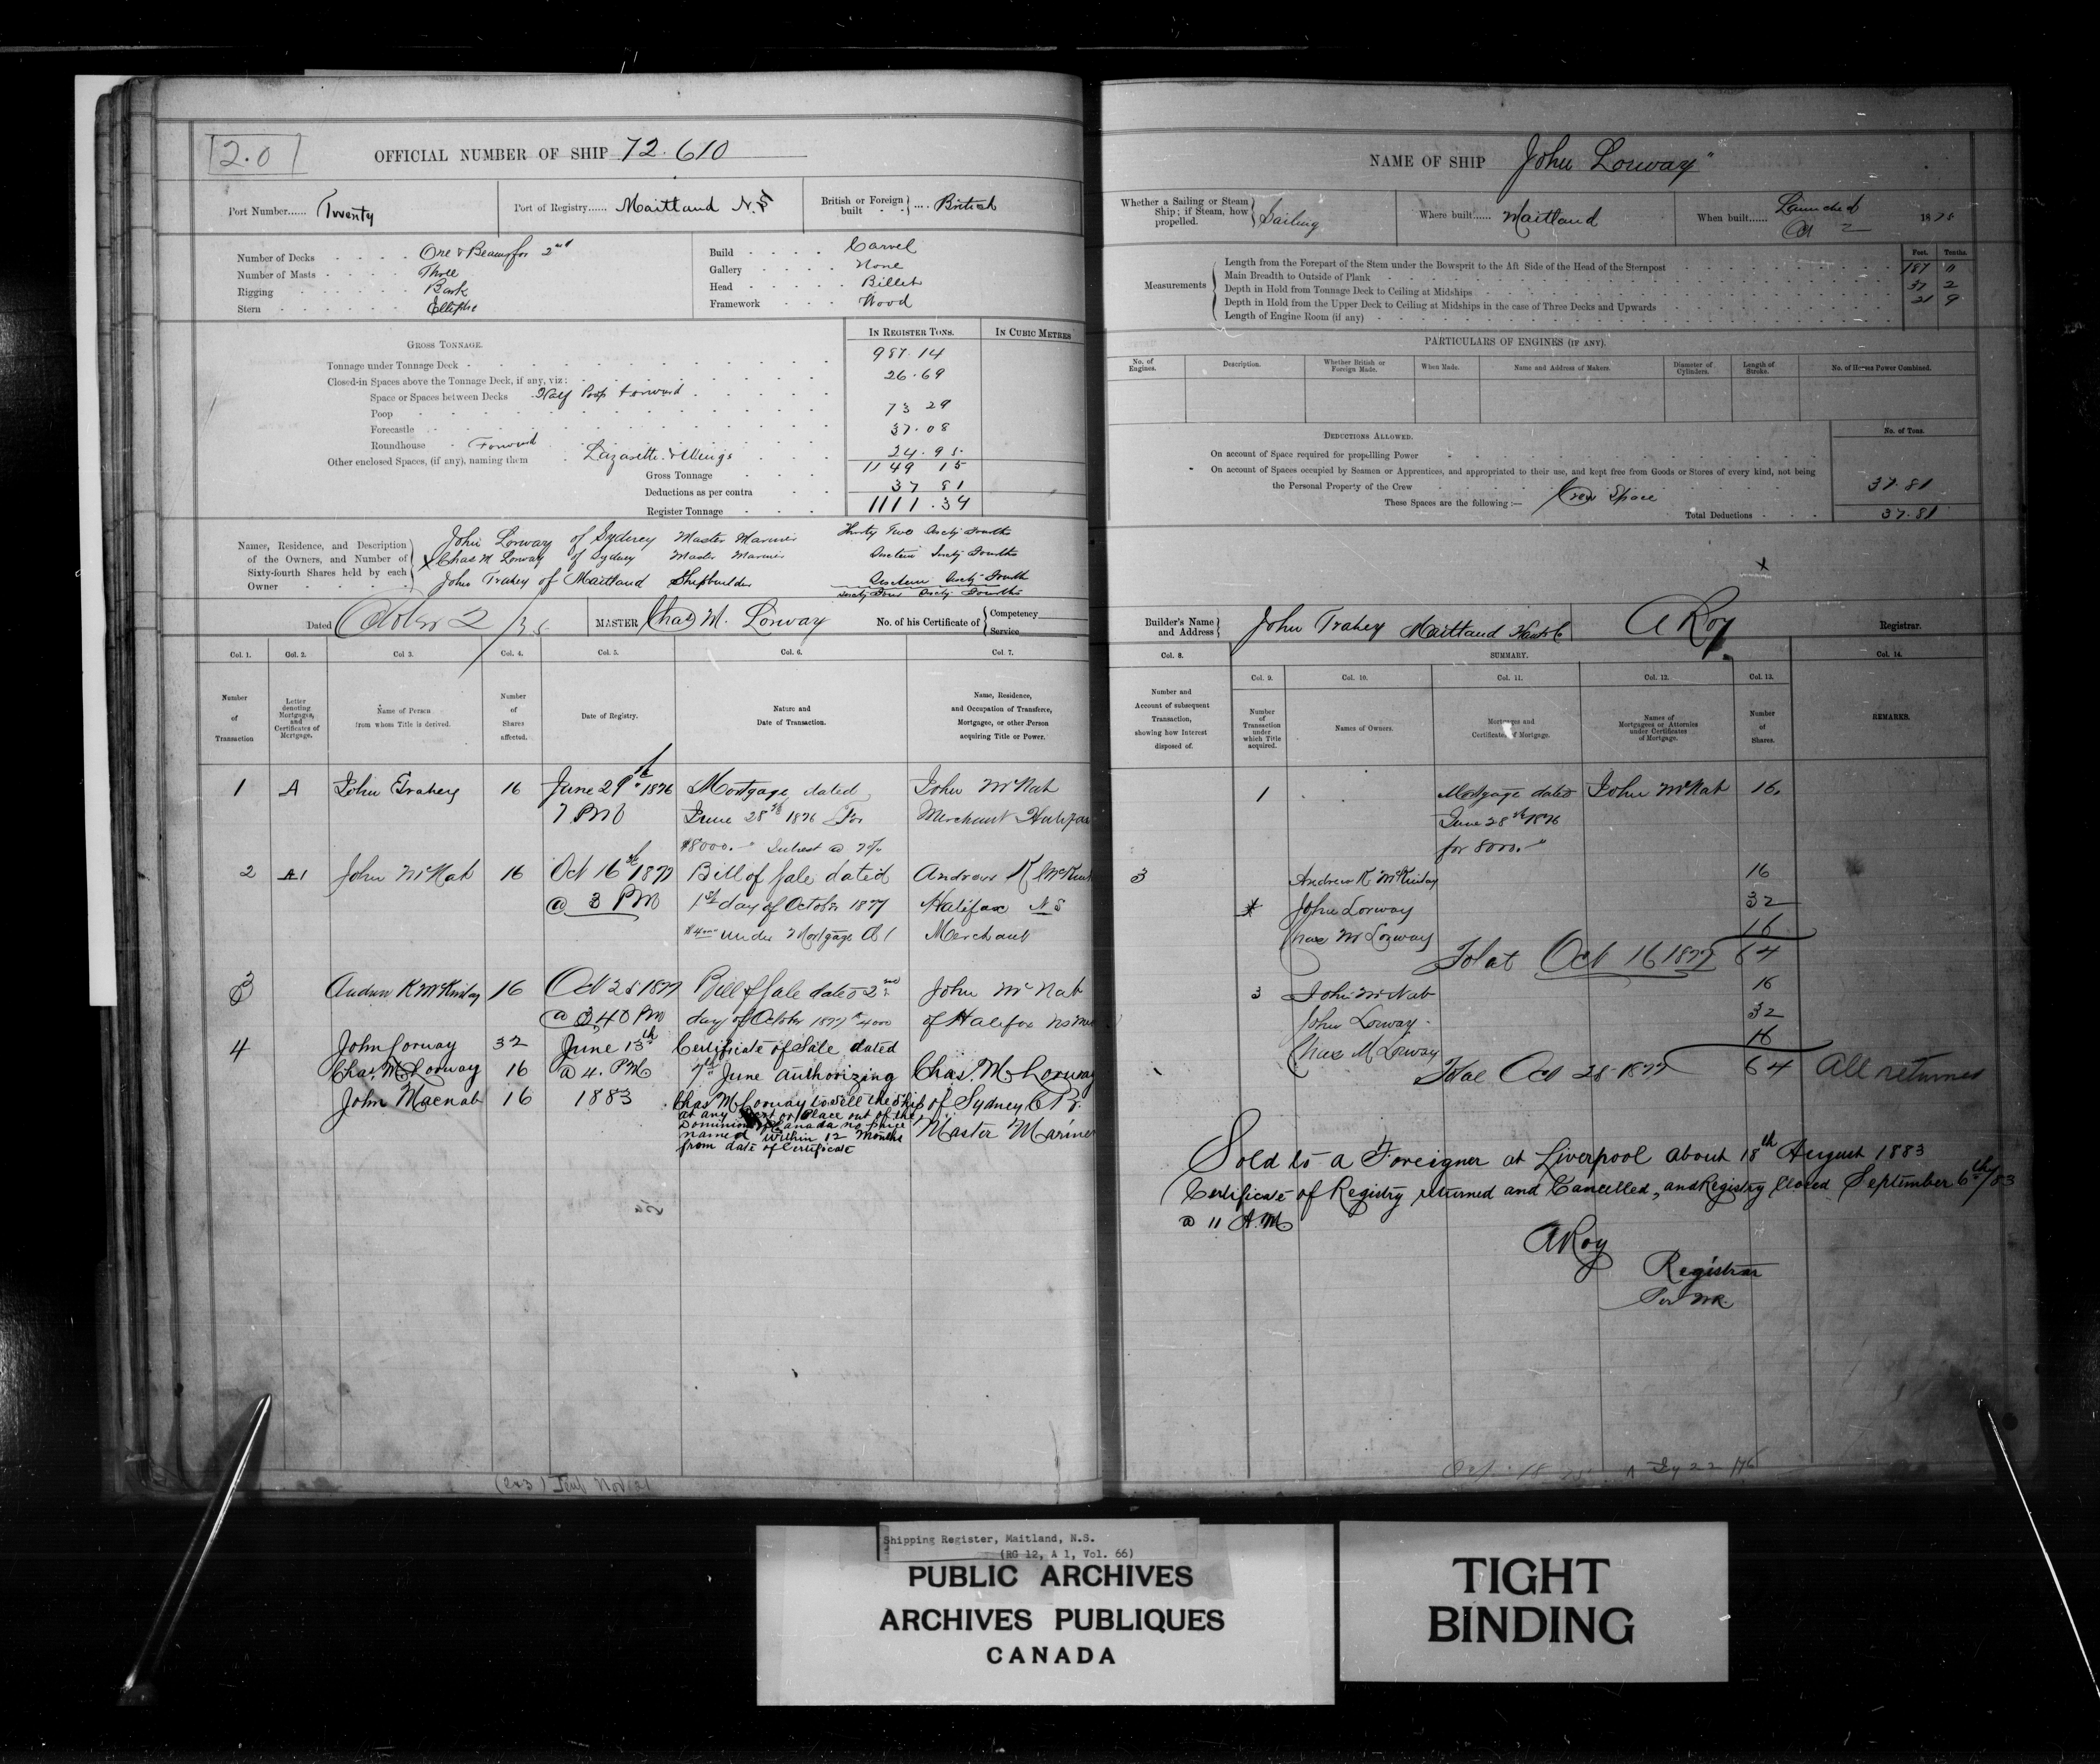 2.0
OFFICIAL NUMBER OF SHIP 72.610
Port Number...... Twenty
Port of Registry...... Maitland N.S
British or Foreign built .... British
Number of Decks One & Beams for 2nd
Number of Masts Three
Rigging Bark
Stern Elliptic
Build Carvel
Gallery None
Head Billet
Framework Wood
IN REGISTER TONS. IN CUBIC METRES
GROSS TONNAGE.
Tonnage under Tonnage Deck 987.14
Closed-in Spaces above the Tonnage Deck, if any, viz: 26.69
Space or Spaces between Decks Half Poop forward
Poop 73 29
Forecastle 37.08
Roundhouse Forward
Other enclosed Spaces, (if any), naming them Lazarette & Wings 24.95
Gross Tonnage 1149 15
Deductions as per contra 37 81
Register Tonnage 1111.34
Names, Residence, and Description of the Owners, and Number of Sixty-fourth Shares held by each Owner
John Lorway of Sydney Master Mariner Thirty Two Sixty Fourths
X Chas M Lorway of Sydney Master Mariner Sixteen Sixty Fourths
John Trahey of Maitland Shipbuilder Sixteen Sixty Fourth
Sixty Four Sixty Fourths
Dated October 2 /75
MASTER Chas M. Lorway
No. of his Certificate of Competency Service
Col. 1. Col. 2. Col 3. Col. 4. Col. 5. Col. 6. Col. 7.
Number of Transaction
Letter denoting Mortgages, and Certificates of Mortgage.
Name of Person from whom Title is derived.
Number of Shares affected.
Date of Registry.
Nature and Date of Transaction.
Name, Residence, and Occupation of Transferee, Mortgagee, or other Person acquiring Title or Power.
1 A John Trahey 16 June 29th 1876 Mortgage dated John McNab
7 PM June 28th 1876 For Merchant Halifax
$8000. Interest @ 7%
2 A1 John McNab 16 Oct 16th 1877 Bill of Sale dated Andrew K McKinlay
@ 3 PM 1st day of October 1877 Halifax N S
$4000 under Mortgage A 1 Merchant
3 Andrew K McKinlay 16 Oct 25 1877 Bill of Sale dated 2nd John McNab
@ 3,40 PM day of October 1877 $4000 of Halifax NS
4 John Lorway 32 June 13th Certificate of Sale dated
Chas. M Lorway 16 @ 4. PM 7th June authorizing Chas. M Lorway
John Macnab 16 1883 Chas M Lorway to sell the Ship of Sydney C B.
at any Port or Place out of the
Dominion of Canada no price Master Mariner
named within 12 Months
from date of Certificate
(2&3)
NAME OF SHIP John Lorway"
Whether a Sailing or Steam Ship; if Steam, how propelled. Sailing
Where built...... Maitland
When built...... Launched 1875
Measurements
Feet. Tenths.
Length from the Forepart of the Stem under the Bowsprit to the Aft Side of the Head of the Sternpost 187
Main Breadth to Outside of Plank 37 2
Depth in Hold from Tonnage Deck to Ceiling at Midships 21 9
Depth in Hold from the Upper Deck to Ceiling at Midships in the case of Three Decks and Upwards
Length of Engine Room (if any)
PARTICULARS OF ENGINES (IF ANY).
No. of Engines.
Description.
Whether British or Foreign Made.
When Made.
Name and Address of Makers.
Diameter of Cylinders.
Length of Stroke.
No. of Horses Power Combined.
DEDUCTIONS ALLOWED.
No. of Tons.
On account of Space required for propelling Power
On account of Spaces occupied by Seamen or Apprentices, and appropriated to their use, and kept free from Goods or Stores of every kind, not being
the Personal Property of the Crew 37.81
These Spaces are the following:— Crew Space
Total Deductions 37.81
x
Builder's Name and Address John Trahey Maitland Hants Co
A Roy Registrar.
Col. 8. SUMMARY. Col. 14.
Col. 9. Col. 10. Col. 11. Col. 12. Col. 13.
Number and Account of subsequent Transaction, showing how Interest disposed of.
Number of Transaction under which Title acquired.
Names of Owners.
Mortgages and Certificates of Mortgage.
Names of Mortgagees or Attornies under Certificates of Mortgage.
Number of Shares.
REMARKS.
1 Mortgage dated John McNab 16
June 28th 1876
for 8000.
3 Andrew K McKinlay 16
John Lorway 32
Chas M Lorway 16
Total Oct 16 1877 64
3 John McNab 16
John Lorway 32
Chas M Lorway 16
Total Oct 25 1877 64 All returned
Sold to a Foreigner at Liverpool about 18th August 1883
Certificate of Registry returned and Cancelled, and Registry Closed September 6th/83
@ 11 A.M
A Roy
Registrar
Per WR.
Shipping Register, Maitland, N.S.
(RG 12, A 1, Vol. 66)
PUBLIC ARCHIVES
ARCHIVES PUBLIQUES
CANADA
TIGHT
BINDING